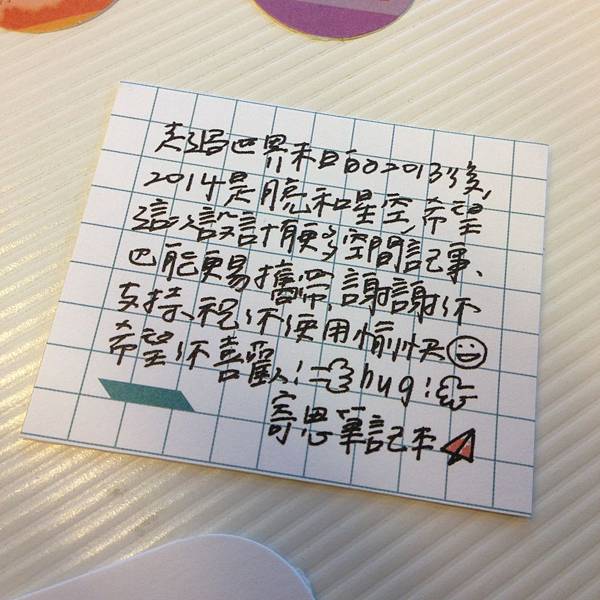 走過世界末日的2013後,
2014是月亮和星空,希望
這次設計有更多空間記事、
也能更易攜帶,謝謝你
支持、祝你使用愉快
希望你喜歡!=hug!
寄思筆記本